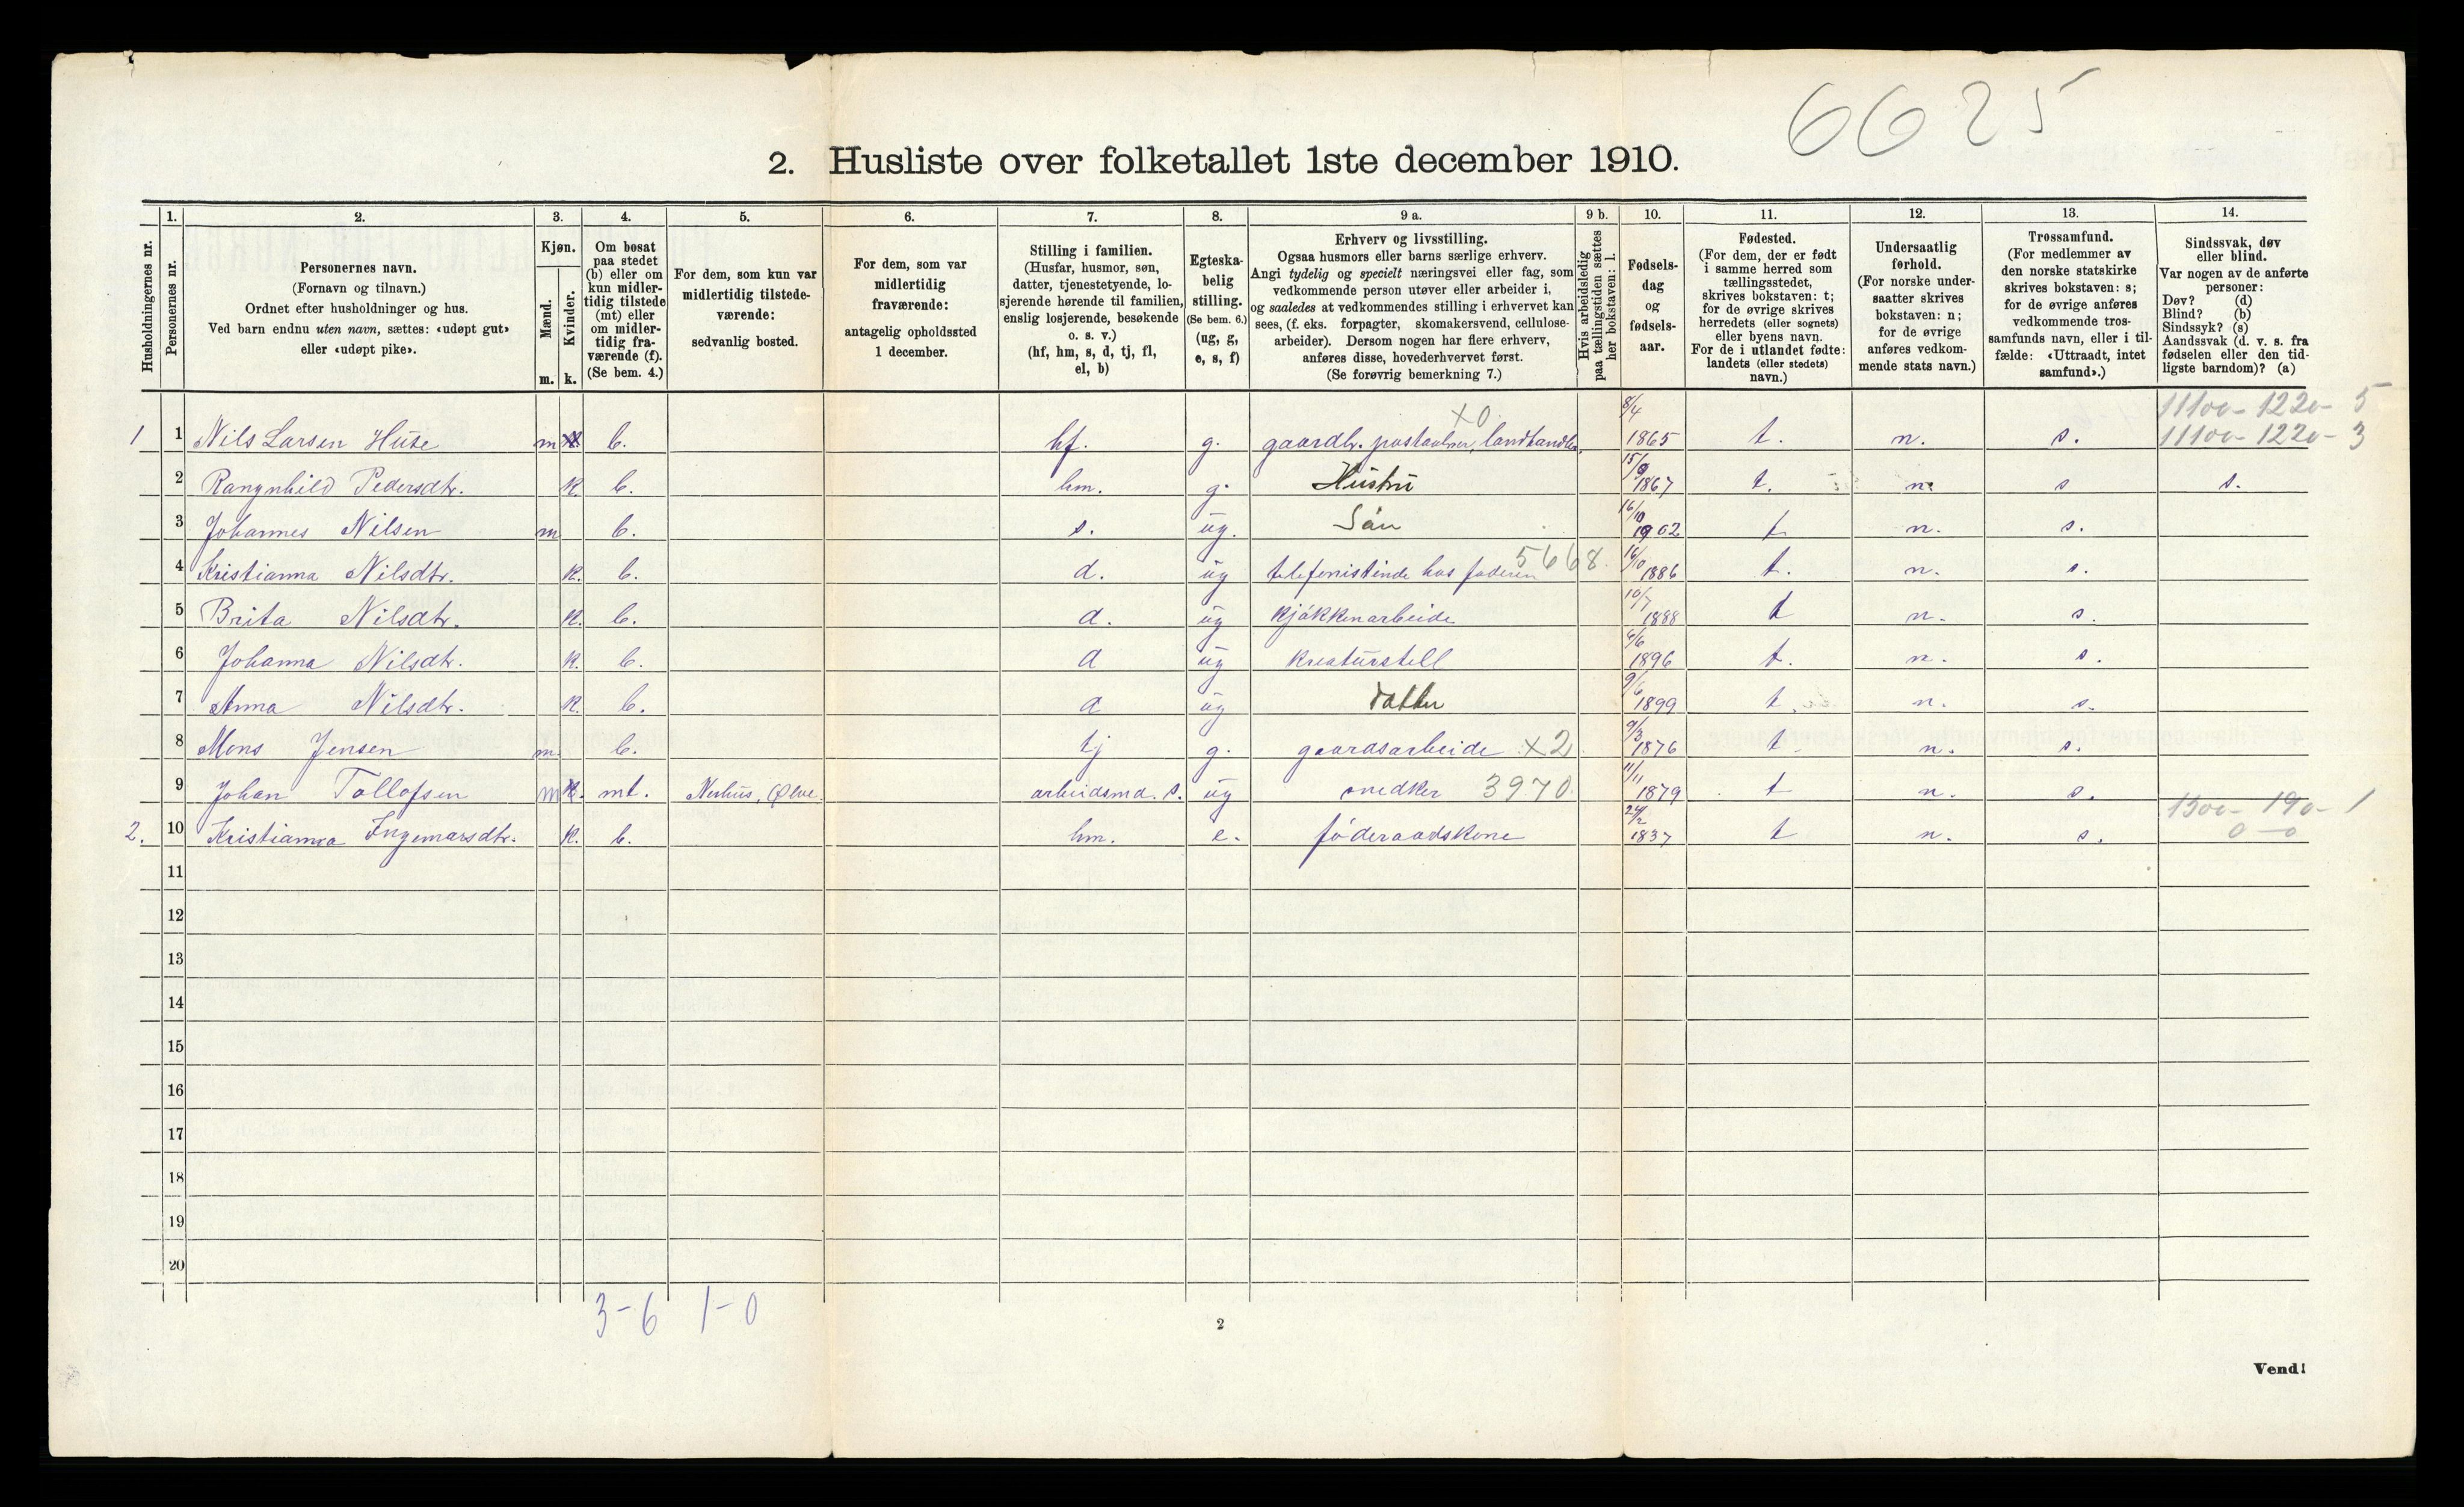 6625
2. Husliste over folketallet 1ste december 1910.
Husholdningernes nr.
1. Personernes nr.
2. Personernes navn. (Fornavn og tilnavn.) Ordnet efter husholdninger og hus. Ved barn endnu uten navn, sættes: «udøpt gut» eller «udøpt pike».
3. Kjøn. Mænd. m. Kvinder. k.
4. Om bosat paa stedet (b) eller om kun midlertidig tilstede (mt) eller om midlertidig fraværende (f). (Se bem. 4.)
5. For dem, som kun var midlertidig tilstedeværende: sedvanlig bosted.
6. For dem, som var midlertidig fraværende: antagelig opholdssted 1 december.
7. Stilling i familien. (Husfar, husmor, søn, datter, tjenestetyende, losjerende hørende til familien, enslig losjerende, besøkende o. s. v.) (hf, hm, s, d, tj, fl, el, b)
8. Egteskabelig stilling. (Se bem. 6.) (ug, g, e, s, f)
9 a. Erhverv og livsstilling. Ogsaa husmors eller barns særlige erhverv. Angi tydelig og specielt næringsvei eller fag, som vedkommende person utøver eller arbeider i, og saaledes at vedkommendes stilling i erhvervet kan sees, (f. eks. forpagter, skomakersvend, cellulosearbeider). Dersom nogen har flere erhverv, anføres disse, hovederhvervet først. (Se forøvrig bemerkning 7.)
9 b. Hvis arbeidsledig paa tællingstiden sættes her bokstaven: l.
10. Fødselsdag og fødselsaar.
11. Fødested. (For dem, der er født i samme herred som tællingsstedet, skrives bokstaven: t; for de øvrige skrives herredets (eller sognets) eller byens navn. For de i utlandet fødte: landets (eller stedets) navn.)
12. Undersaatlig forhold. (For norske undersaatter skrives bokstaven: n; for de øvrige anføres vedkommende stats navn.)
13. Trossamfund. (For medlemmer av den norske statskirke skrives bokstaven: s; for de øvrige anføres vedkommende trossamfunds navn, eller i tilfælde: «Uttraadt, intet samfund».)
14. Sindssvak, døv eller blind. Var nogen av de anførte personer: Døv? (d) Blind? (b) Sindssyk? (s) Aandssvak (d. v. s. fra fødselen eller den tidligste barndom)? (a)
11100- 1220- 5
1 1 Nils Larsen Huse m b. hf. g. gaardbr. postaabner, landhandler, x0 8/4 1865 t. n. s. 11100- 1220- 3
2 Rangnhild Pedersdtr. k. b. hm. g. Hustru 15/9 1867 t. n. s s.
3 Johannes Nilsen m b. s. ug. Sön 16/10 1902 t n. s.
4 Kristianna Nilsdtr. k. b. d. ug telefonistinde hos faderen 5668. 16/10 1886 t. n. s.
5 Brita Nilsdtr. k. b. d. ug kjökkenarbeide 10/7 1888 t n. s.
6 Johanna Nilsdtr. k. b. d ug kreaturstell 4/6 1896 t. n. s.
7 Anna Nilsdtr. k. b. d ug datter 9/6 1899 t. n. s.
8 Mons Jensen m. b. tj g. gaardsarbeide x2 9/3 1876 t n. s.
9 Johan Tollofsen m mt. Nerhus, Ølve. arbeidsmd. s. ug snedker 3970. 11/11 1879 t n. s.
1300- 190- 1
2. 10 Kristianna Ingemarsdtr. k. b. hm. e. föderaadskone 24/2 1837 t n. s. 0-0
11
12
13
14
15
16
17
18
19
20
3-6 1-0
2
Vend!